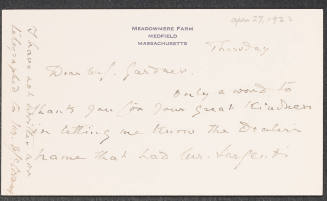 april 27, 1922
MEADOWMERE FARM
MEDFIELD
MASSACHUSETTS
Thursday
Dear Mrs. Gardner.
Only a word to
thank you for your great kindness
in letting me know the Dealers
name that had Mr. Sargent's
I have not
telegraphed